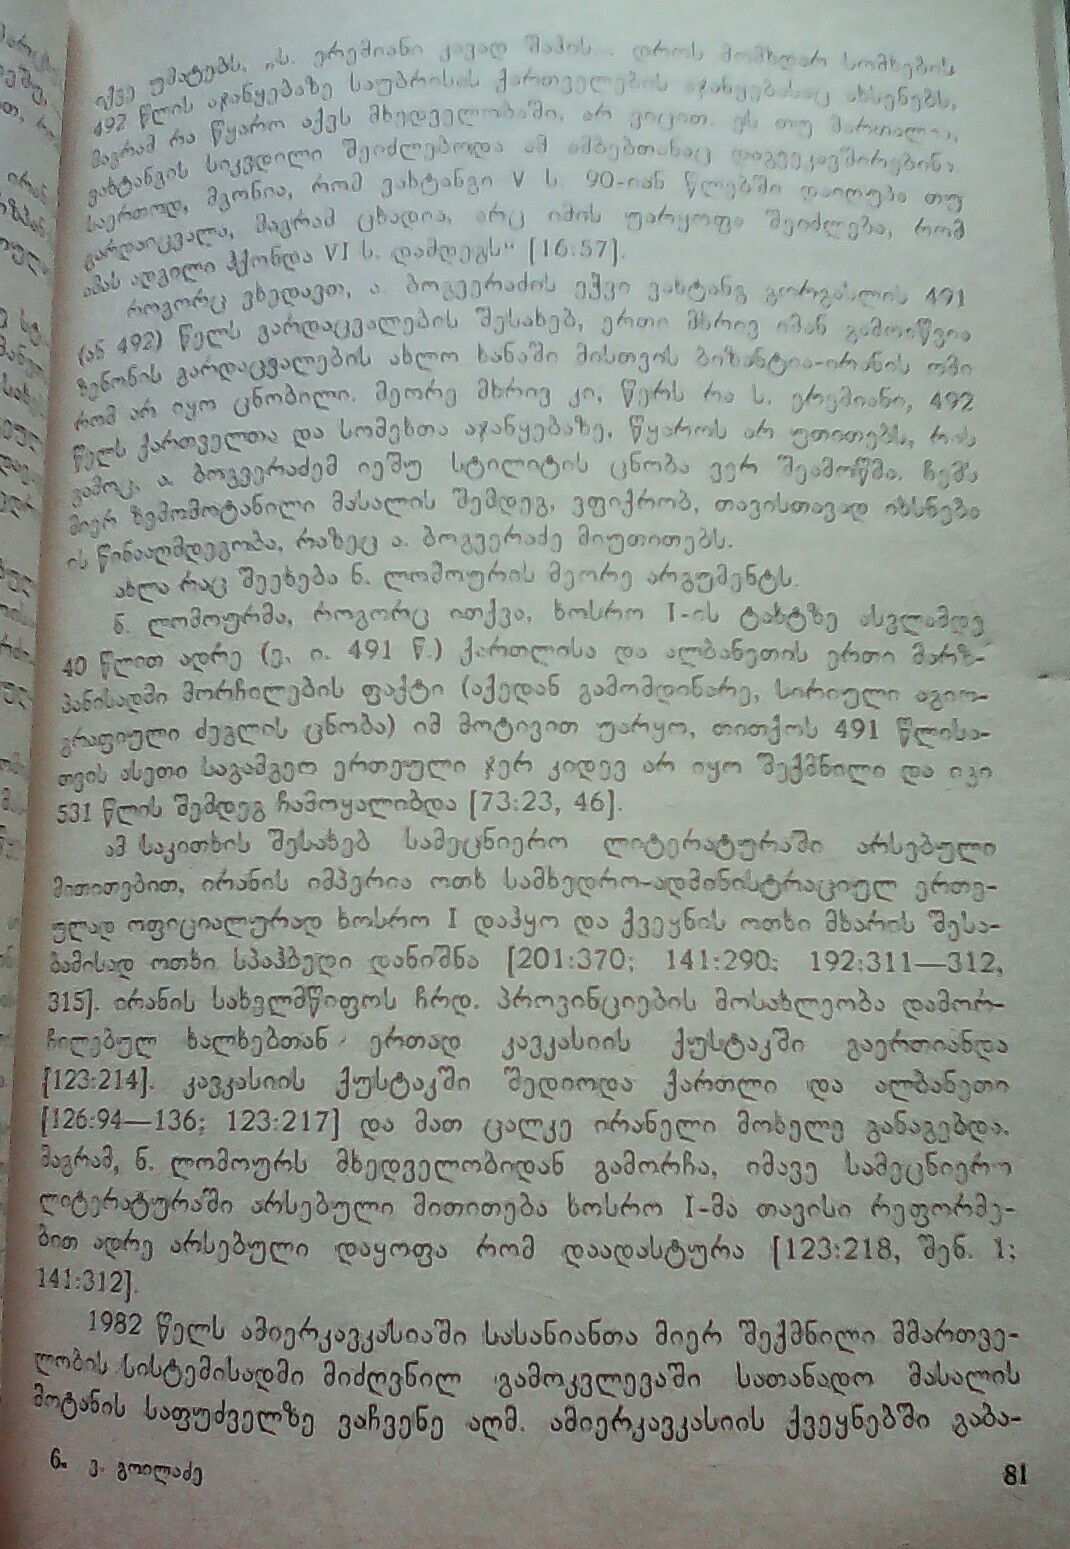 იქვე უმატებს, „ს. ერემიანი კავად შაჰის... დროს მომხდარ სომხების
492 წლის აჯანყებაზე საუბრისას ქართველების აჯანყებასაც ახსენებს,
მაგრამ რა წყარო აქვს მხედველობაში, არ ვიცით. ეს თუ მართალია,
ვახტანგის სიკვდილი შეიძლებოდა ამ ამბებთანაც დაგვეკავშირებინა.
საერთოდ, მგონია, რომ ვახტანგი V ს. 90-იან წლებში დაიღუპა თუ
გარდაიცვალა, მაგრამ ცხადია, არც იმის უარყოფა შეიძლება, რომ
ამას ადგილი ჰქონდა VI ს. დამდეგს“ [16:57].
როგორც ვხედავთ, ა. ბოგვერაძის ეჭვი ვახტანგ გორგასლის 491
(ან 492) წელს გარდაცვალების შესახებ, ერთი მხრივ იმან გამოიწვია
ზენონის გარდაცვალების ახლო ხანაში მისთვის ბიზანტია-ირანის ომი
რომ არ იყო ცნობილი. მეორე მხრივ კი, წერს რა ს. ერემიანი, 492
წელს ქართველთა და სომეხთა აჯანყებაზე, წყაროს არ უთითებს, რის
გამოც, ა. ბოგვერაძემ იეშუ სტილიტის ცნობა ვერ შეამოწმა. ჩემს
მიერ ზემომოტანილი მასალის შემდეგ, ვფიქრობ, თავისთავად იხსნება
ის წინააღმდეგობა, რაზეც ა. ბოგვერაძე მიუთითებს.
ახლა რაც შეეხება ნ. ლომოურის მეორე არგუმენტს.
ნ. ლომოურმა, როგორც ითქვა, ხოსრო I-ის ტახტზე ასვლამდე
40 წლით ადრე (ე. ი. 491 წ.) ქართლისა და ალბანეთის ერთი მარზ-
პანისადმი მორჩილების ფაქტი (აქედან გამომდინარე, სირიული აგიო-
გრაფიული ძეგლის ცნობა) იმ მოტივით უარყო, თითქოს 491 წლისა-
თვის ასეთი საგამგეო ერთეული ჯერ კიდევ არ იყო შექმნილი და იგი
531 წლის შემდეგ ჩამოყალიბდა [73:23, 46].
ამ საკითხის შესახებ სამეცნიერო ლიტერატურაში არსებული
მითითებით, ირანის იმპერია ოთხ სამხედრო-ადმინისტრაციულ ერთე-
ულად ოფიციალურად ხოსრო I დაჰყო და ქვეყნის ოთხი მხარის შესა-
ბამისად ოთხი სპაჰბედი დანიშნა [201:370; 141:290; 192:311—312,
315]. ირანის სახელმწიფოს ჩრდ. პროვინციების მოსახლეობა დამორ-
ჩილებულ ხალხებთან ერთად კავკასიის ქუსტაკში გაერთიანდა
[123:214]. კავკასიის ქუსტაკში შედიოდა ქართლი და ალბანეთი
[126:94—136; 123:217] და მათ ცალკე ირანელი მოხელე განაგებდა.
მაგრამ, ნ. ლომოურს მხედველობიდან გამორჩა, იმავე სამეცნიერო
ლიტერატურაში არსებული მითითება ხოსრო I-მა თავისი რეფორმე-
ბით ადრე არსებული დაყოფა რომ დაადასტურა [123:218, შენ. 1;
141:312].
1982 წელს ამიერკავკასიაში სასანიანთა მიერ შექმნილი მმართვე-
ლობის სისტემისადმი მიძღვნილ გამოკვლევაში სათანადო მასალის
მოტანის საფუძველზე ვაჩვენე აღმ. ამიერკავკასიის ქვეყნებში გაბა-
6. ვ. გოილაძე
81